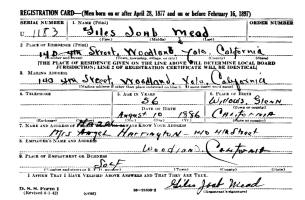 REGISTRATION CARD—(Men born on or after April 28, 1877 and on or before February 16, 1897)
SERIAL NUMBER 1. NAME (Print) ORDER NUMBER
U 1183 Giles Jont Mead
(First) (Middle) (Last)
2. PLACE OF RESIDENCE (Print)
140 4th Street, Woodland Yolo, California
(Number and street) (Town, township, village, or city) (County) (State)
[THE PLACE OF RESIDENCE GIVEN ON THE LINE ABOVE WILL DETERMINE LOCAL BOARD
JURISDICTION; LINE 2 OF REGISTRATION CERTIFICATE WILL BE IDENTICAL]
3. MAILING ADDRESS
140 4th Street, Woodland, Yolo, California
4. TELEPHONE 5. AGE IN YEARS 6. PLACE OF BIRTH
56 Willows, Glenn
DATE OF BIRTH
August 10 1886 California
7. NAME AND ADDRESS OF PERSON WHO WILL ALWAYS KNOW YOUR ADDRESS
Mrs Harrington
8. EMPLOYER'S NAME AND ADDRESS
Woodland California
9. PLACE OF EMPLOYMENT OR BUSINESS
Self
I AFFIRM THAT I HAVE VERIFIED ABOVE ANSWERS AND THAT THEY ARE TRUE.
D. S. S. Form 1
(Revised 4-1-42)
Giles Jont Mead